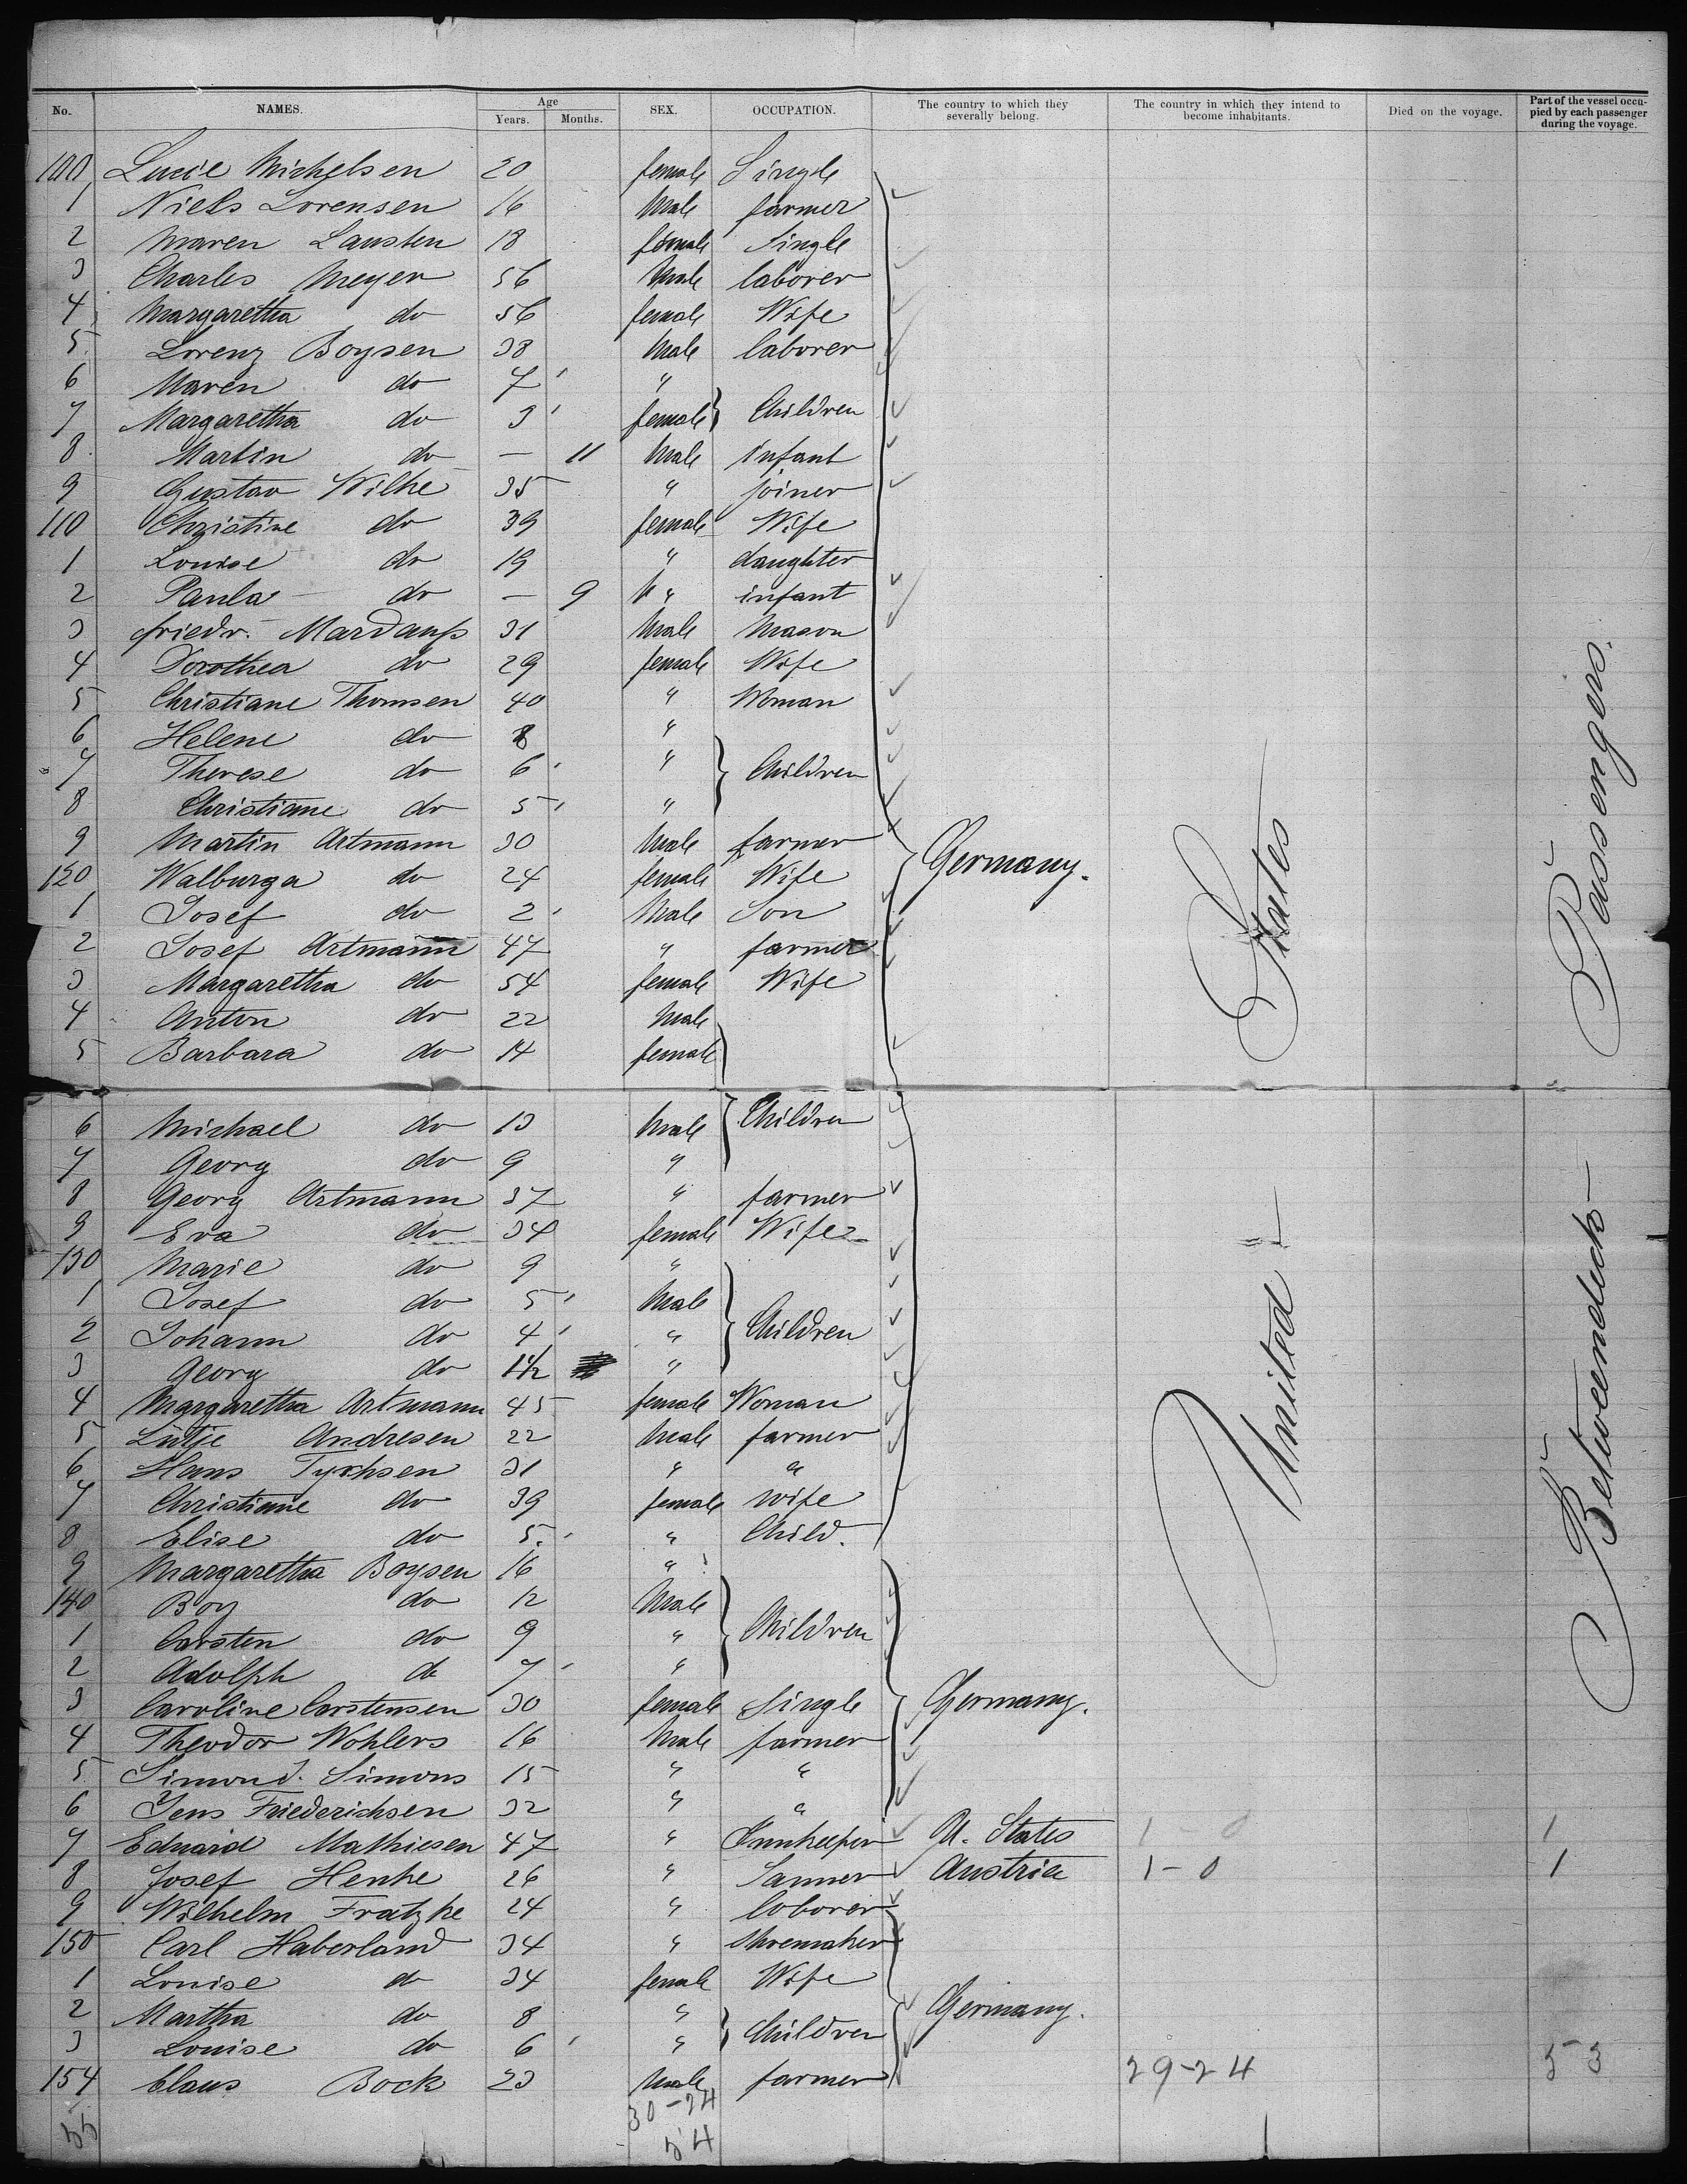 No. NAMES. Age Years. Months. SEX. OCCUPATION. The country to which they severally belong. The country in which they intend to become inhabitants. Died on the voyage. Part of the vessel occupied by each passenger during the voyage.
100 Lucie Michelsen 20 female Single
1 Niels Lorensen 16 Male farmer
2 Maren Lausten 18 female Single
3 Charles Meyer 56 Male laborer
4 Margaretha do 56 female Wife
5 Lorenz Boysen 38 Male laborer
6 Maren do 7 "
7 Margaretha do 3 female } Children
8 Martin do — 11 Male infant
9 Gustav Wilke 35 " joiner
110 Christine do 39 female Wife
1 Louise do 19 " daughter
2 Paula do — 9 " infant
3 friedr. 31 Male Mason
4 Dorothea do 29 female Wife
5 Christiane Thomsen 40 " Woman
6 Helene do 8 "
7 Therese do 6 " } Children
8 Christiane do 5 "
9 Martin Artmann 30 Male farmer
120 Walburga do 24 female Wife Germany.
1 Josef do 2 Male Son
2 Josef Artmann 47 " farmer
3 Margaretha do 54 female Wife
4 Anton do 22 Male
5 Barbara do 14 female
6 Michael do 13 Male } Children
7 Georg do 9 "
8 Georg Artmann 37 " farmer
9 Eva do 34 female Wife
130 Marie do 9 "
1 Josef do 5 Male
2 Johann do 4 " } Children
3 Georg do 1 1/2 "
4 Margaretha Artmann 45 female Woman
5 Lütje Andresen 22 Male farmer
6 Hans Tychsen 31 " "
7 Christiane do 39 female wife
8 Elise do 5. " Child.
9 Margaretha Boysen 16 "
140 Boy do 12 Male
1 Carsten do 9 " } Children
2 Adolph do 7 "
3 Caroline Carstensen 30 female Single Germany.
4 Theodor Wohlers 16 Male farmer
5 Simon J. Simons 15 " "
6 Jens Friederichsen 32 " "
7 Eduard Mathiesen 47 " Innkeeper U. States 1 - 0 1
8 Josef Henke 26 " Tanner Austria 1 - 0 1
9 Wilhelm Fratzke 24 " laborer
150 Carl Haberland 34 " Shoemaker
1 Louise do 34 female Wife
2 Martha do 8 " Germany.
3 Louise do 6 " } Children
154 Claus Bock 23 Male farmer 29-24 53
55 30-24
54
United States
Betweendeck Passengers.